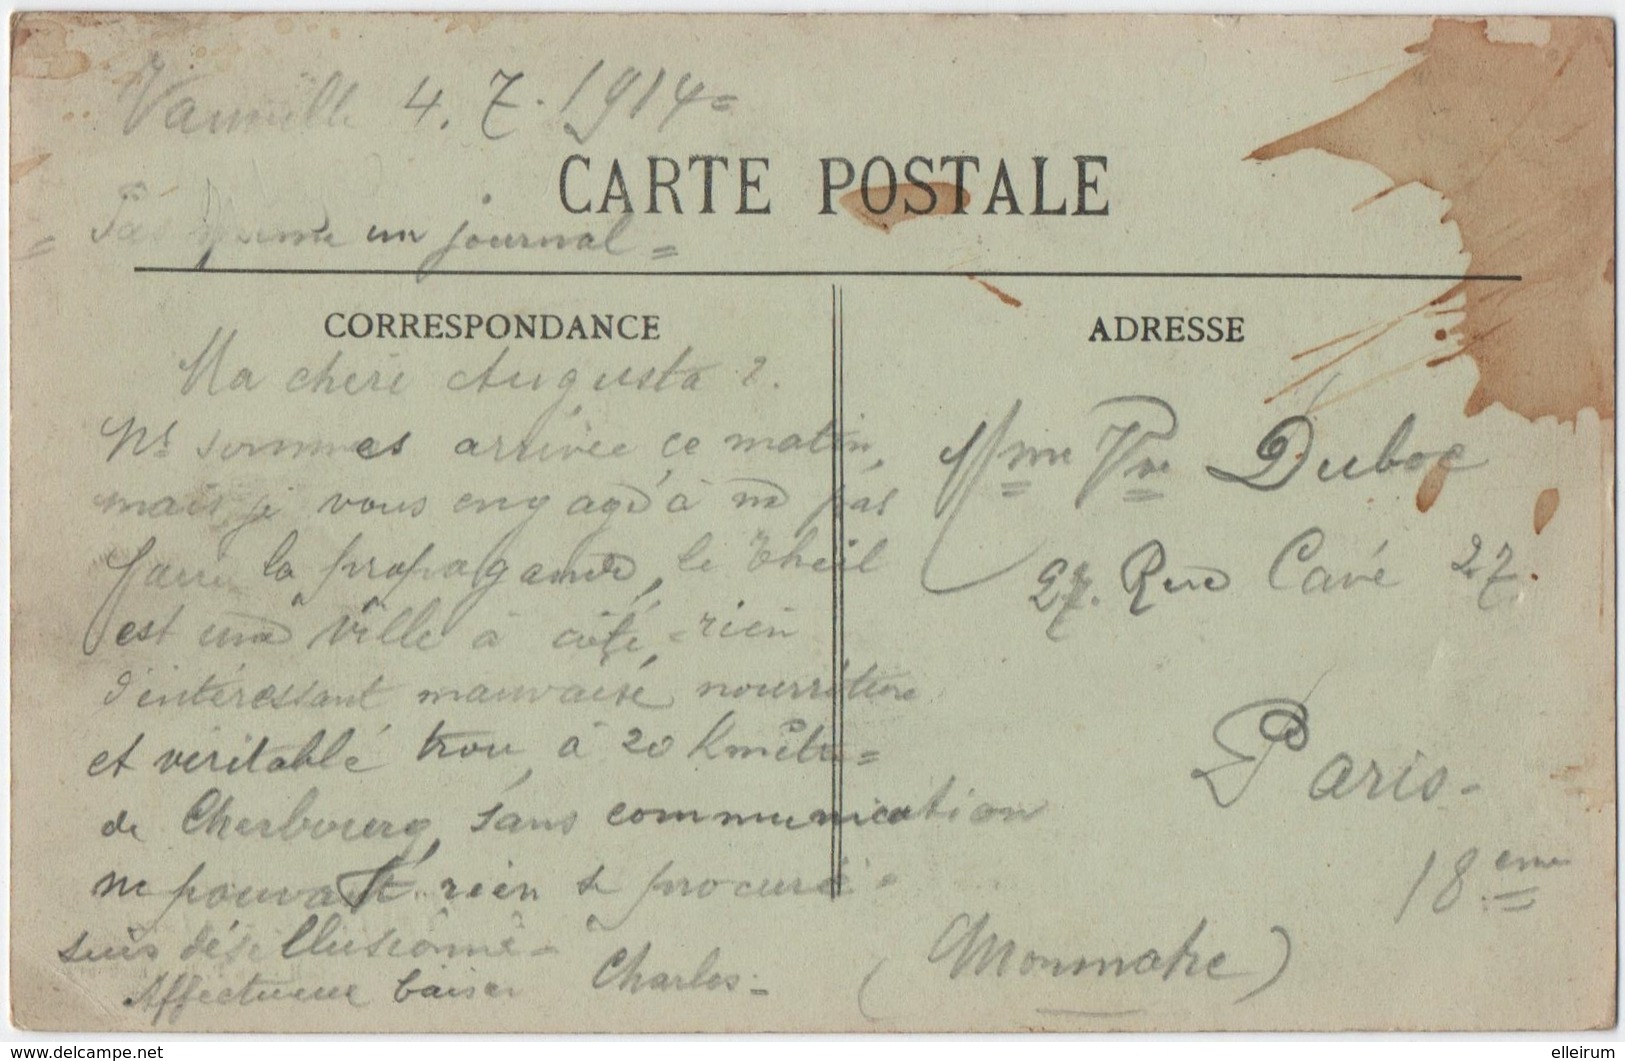 4. 7. 1914 =
CARTE POSTALE
= Pas même un journal =
CORRESPONDANCE
Ma chère Augusta
Ns sommes arrivée ce matin,
mais je vous engage à ne pas
faire la propagande, le Theil
est une ville à côté, - rien
d'intéressant mauvaise nourriture
et véritable trou à 20 Kmètre =
de Cherbourg, sans communication
ne pouvant rien se procuré -
suis désillusionné -
Affectueux baiser Charles -
ADRESSE
Mme Vve Duboc
27. Rue Cavé 27.
Paris -
18 eme
(Monmatre)
www.delcampe.net
elleirum